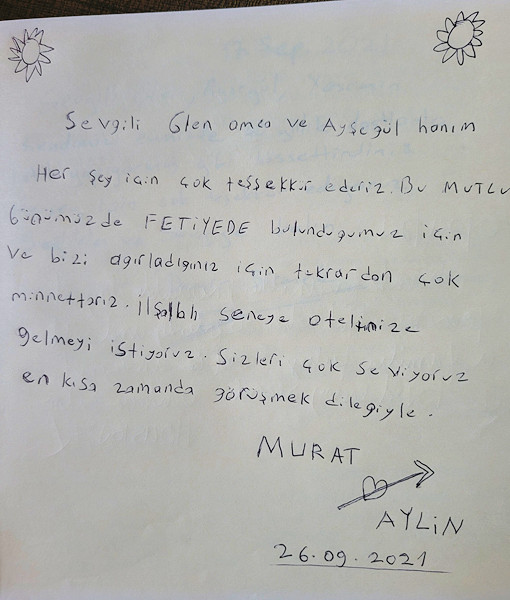 Sevgili Glen amca ve Ayşegül hanım
Her şey için çok teşsekkür ederiz. Bu MUTLU
Günümüzde FETİYEDE bulunduğumuz için
ve bizi agırladıgınız için tekrardan çok
minnettarız. İlşallah seneye otelinize
gelmeyi istiyoruz. Sizleri çok seviyoruz
en kısa zamanda görüşmek dilegiyle.
MURAT
AYLİN
26.09.2021